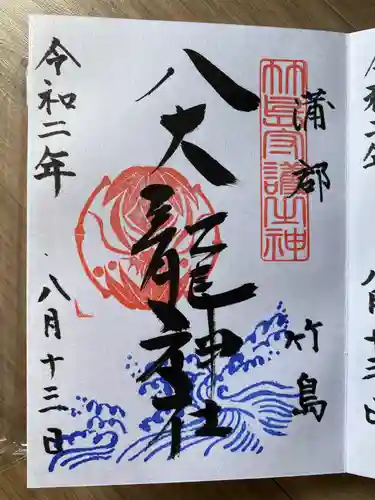 蒲郡 竹島
竹島守護之神
八大龍神社
令和二年 八月十三日